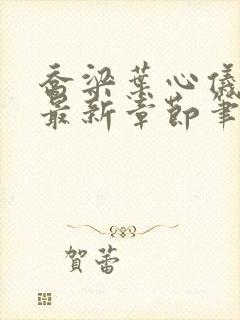 喬梁葉心儀
最新章節筆
賀蕾